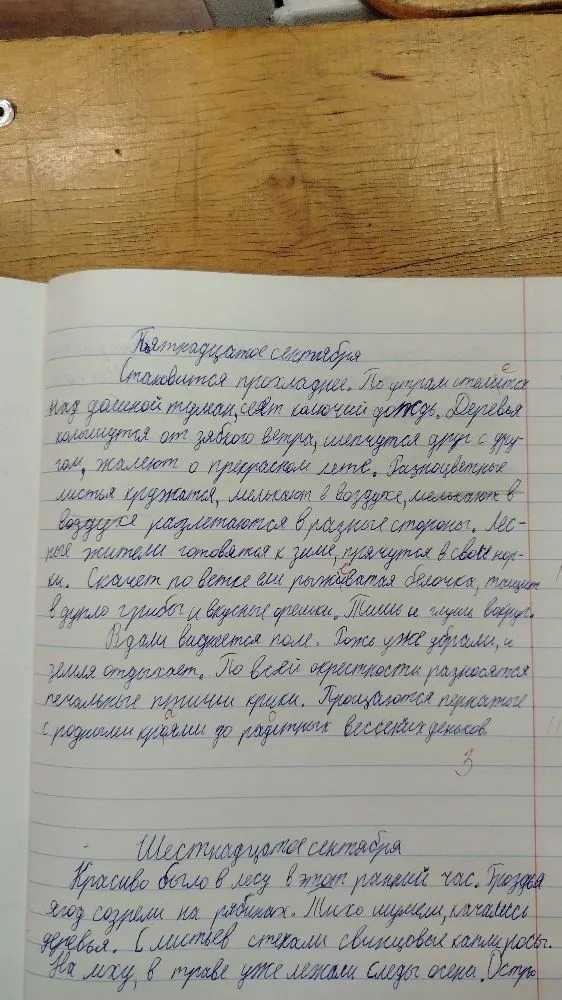 Пятнадцатое сентября
Становится прохладнее. По утрам стелится
над долиной туман, сеят колючий дождь. Деревья
колышутся от зябкого ветра, шепчутся друг с дру-
гом, жалеют о прекрасном лете. Разноцветные
листья кружатся, мелькают в воздухе, мелькают в
воздухе разлетаются в разные стороны. Лес-
ные жители готовятся к зиме, прячутся в свои нор-
ки. Скачет по ветке ели рыжеватая белочка, тащит
в дупло грибы и вкусные орешки. Тишь и глушь вокруг.
Вдали виднеется поле. Рожь уже убрали, и
земля отдыхает. По всей окрестности разносятся
печальные птичьи крики. Прощаются пернатые
с родными краями до радостных весенних деньков.
3
Шестнадцатое сентября
Красиво было в лесу в этот ранний час. Гроздья
ягод созрели на рябинах. Тихо шумели, качаясь
деревья. С листьев стекали свинцовые капли росы.
На мху, в траве уже лежали следы осени. Остро